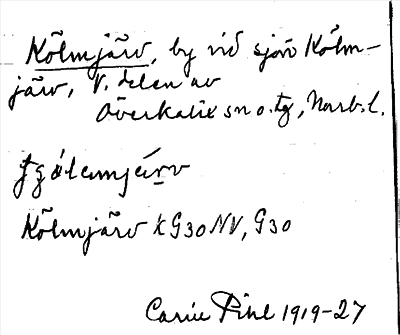 Kölmjärv, by vid sjön Kölm-
järv, V. delen av
Överkalix sn o. tg, Norrb. l.
Kölmjärv K G30 NV, G30
Carin Pihl 1919-27